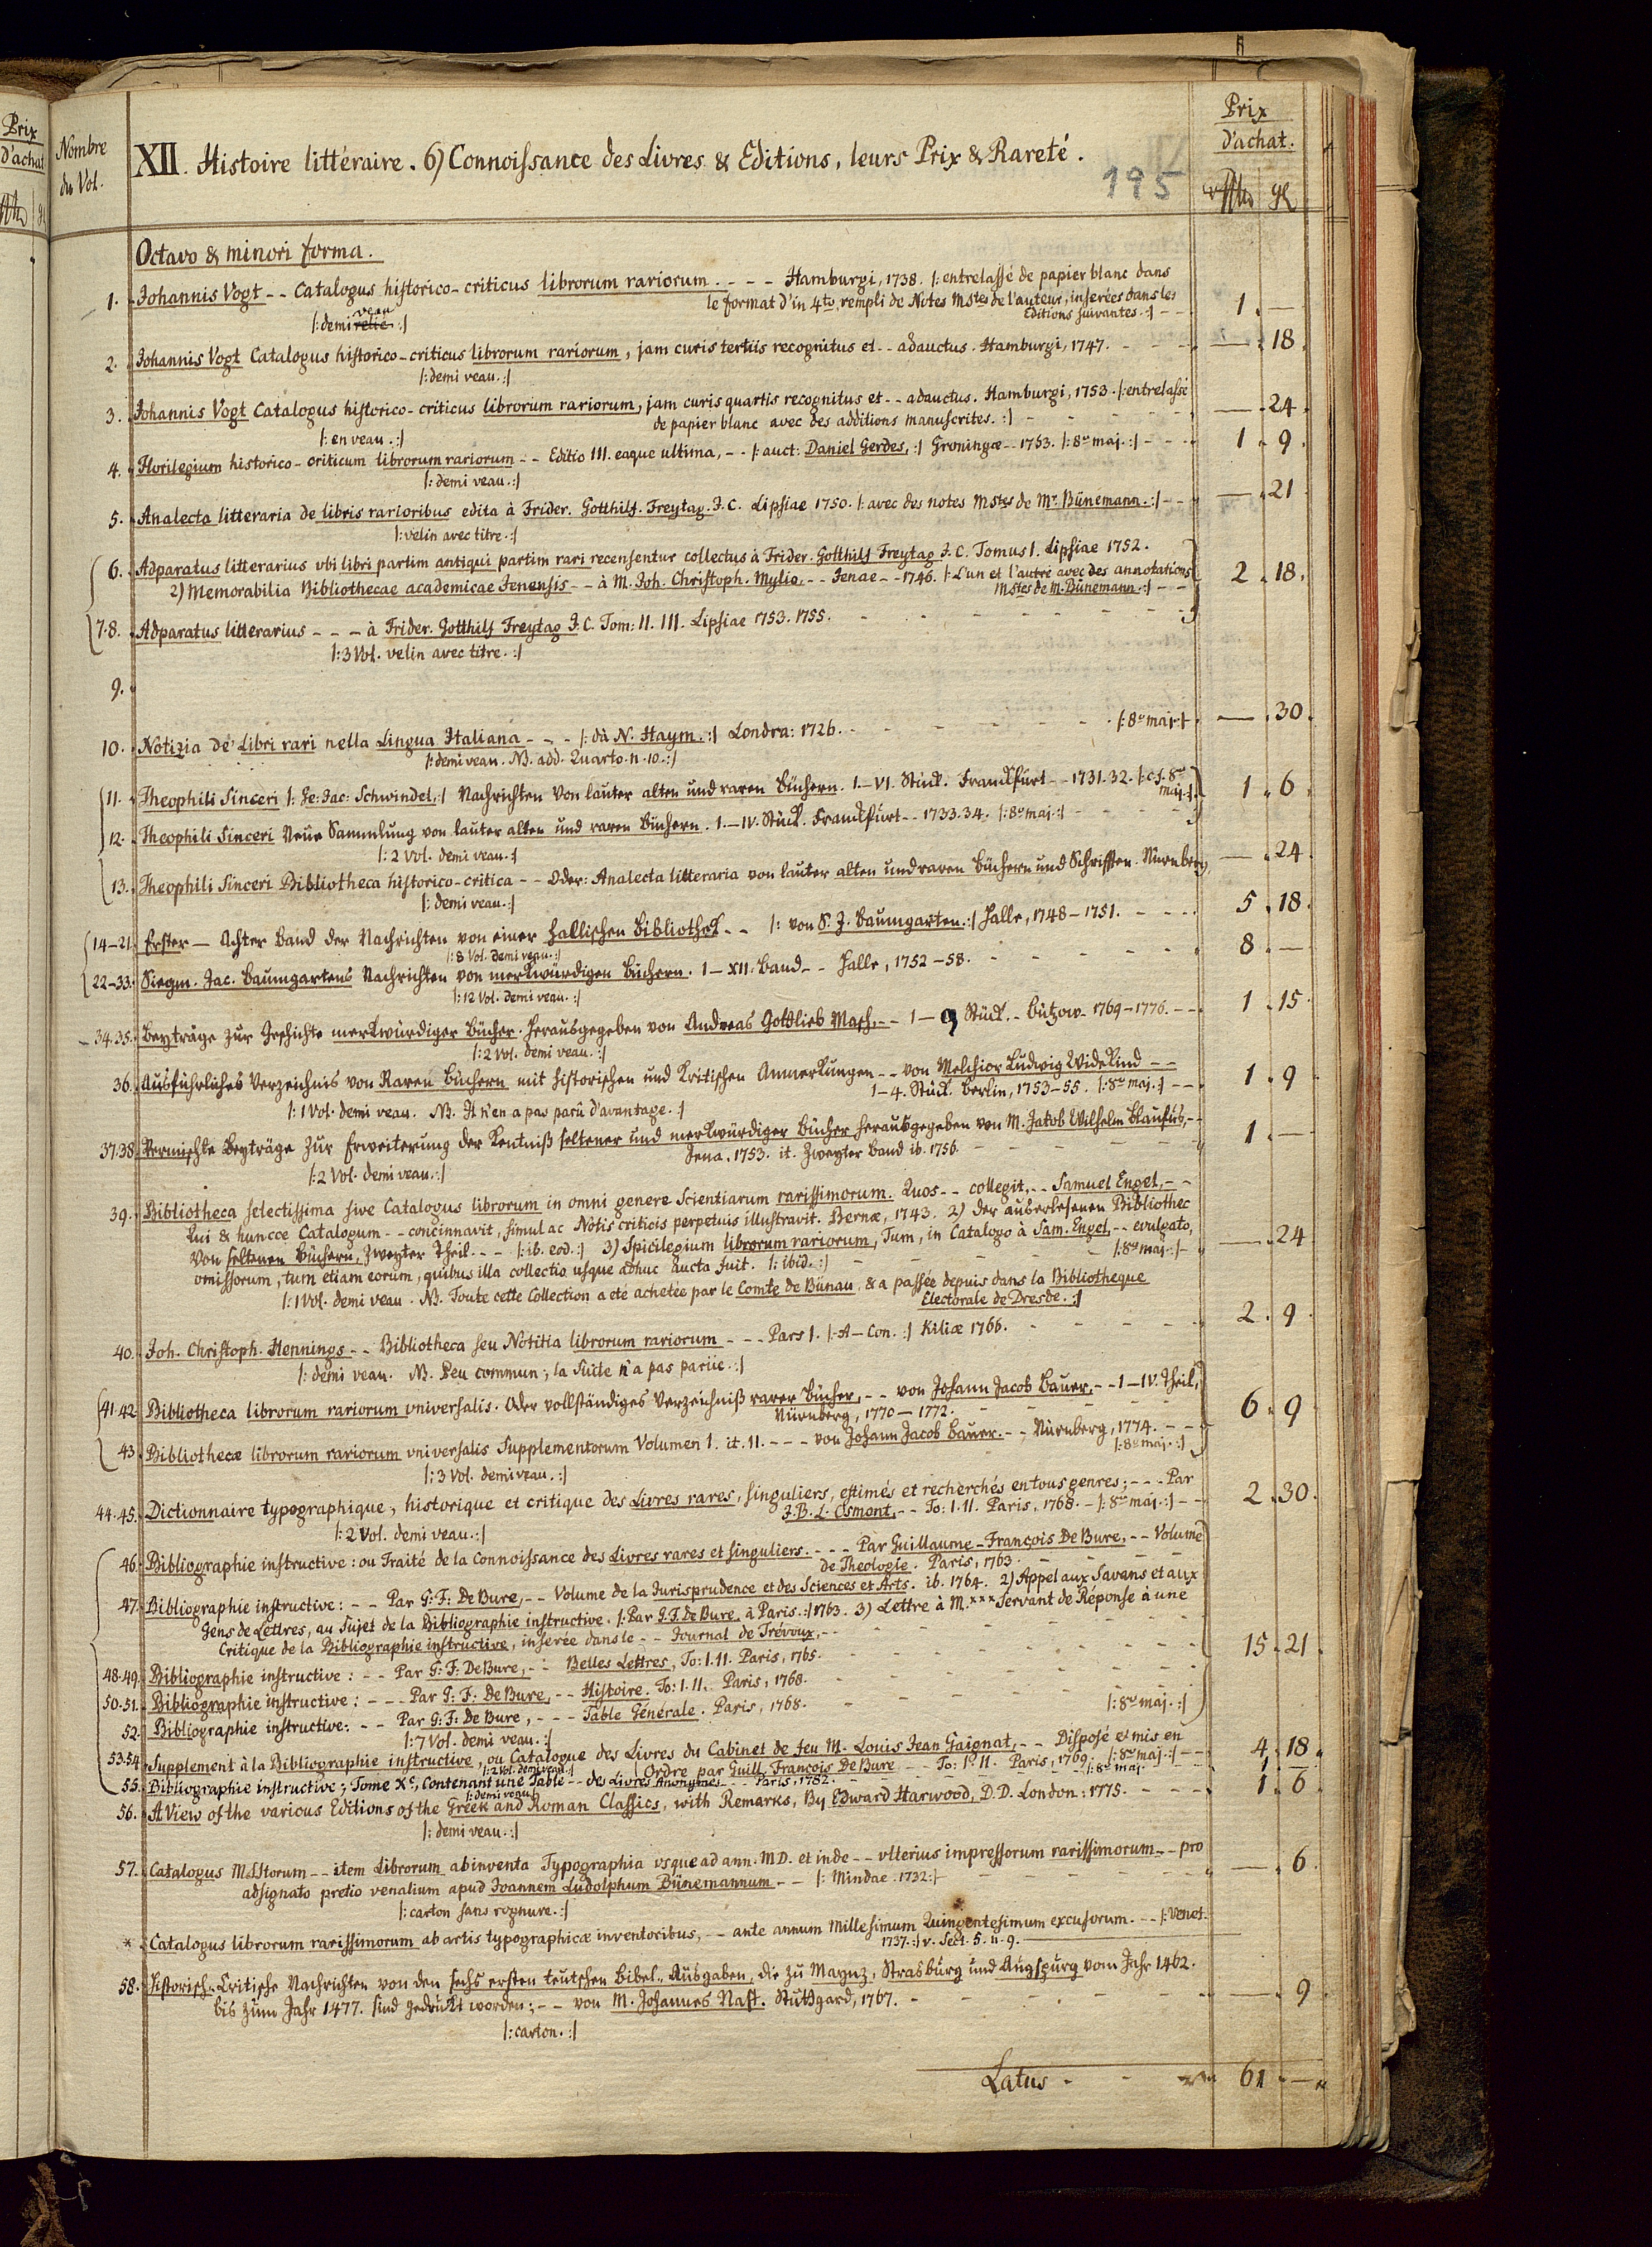 Prix
d'achat
Nombre
du Vol.
XII. Histoire littéraire. 6) Connoissance des Livres & Editions, leurs Prix & Rareté.
195
Prix
d'achat.
Octavo & minori forma.
1. Johannis Vogt -- Catalogus historico-criticus librorum rariorum. --- Hamburgi, 1738. |: entrelassé de papier blanc dans
le format d'in 4to, rempli de Notes Mstes de l'auteur, inserées dans les
Editions suivantes. :| -- 1. —
|: demi relié veau :|
2. Johannis Vogt Catalogus historico-criticus librorum rariorum, jam curis tertiis recognitus et -- adauctus. Hamburgi, 1747. - - - — . 18.
|: demi veau. :|
3. Johannis Vogt Catalogus historico-criticus librorum rariorum, jam curis quartis recognitus et -- adauctus. Hamburgi, 1753. |: entrelassé
de papier blanc avec des additions manuscrites. :| - - - — . 24.
|: en veau. :|
4. Florilegium historico-criticum librorum rariorum -- Editio III. eaque ultima, -- |: auct: Daniel Gerdes, :| Groningæ -- 1763. |: 8vo maj. :| - - - 1. 9.
|: demi veau. :|
5. Analecta litteraria de libris rarioribus edita à Frider. Gotthilf. Freytag. J. C. Lipsiae 1750. |: avec des notes Mstes de Mr. Bünemann. :| -- — . 21.
|: velin avec titre. :|
6. Adparatus litterarius vbi libri partim antiqui partim rari recensentur collectus à Frider. Gotthilf Freytag J. C. Tomus I. Lipsiae 1752.
2) Memorabilia Bibliothecae academicae Jenensis -- à M. Joh. Christoph. Mylio. -- Jenae -- 1746. |: L'un et l'autre avec des annotations
Mstes de M. Bünemann. :| -- 2. 18.
7.8. Adparatus litterarius --- à Frider. Gotthilf Freytag J. C. Tom: II. III. Lipsiae 1753. 1755. - - -
|: 3 Vol. velin avec titre. :|
9.
10. Notizia de' Libri rari nella Lingua Italiana --- |: dà N. Haym. :| Londra: 1726. - - - |: 8vo maj. :| — . 30.
|: demi veau. NB. add. Quarto. n. 10. :|
11. Theophili Sinceri |: Ge: Jac: Schwindel, :| Nachrichten von lauter alten und raren Büchern. I.—VI. Stück. Franckfurt -- 1731. 32. |: cf. 8vo
maj. :| 1. 6.
12. Theophili Sinceri Neue Sammlung von lauter alten und raren Büchern. I.—IV. Stück. Franckfurt -- 1733. 34. |: 8vo maj. :| - - -
|: 2 Vol. demi veau. :|
13. Theophili Sinceri Bibliotheca historico-critica -- Oder: Analecta litteraria von lauter alten und raren Büchern und Schrifften. Nürnberg — . 24.
|: demi veau. :|
14—21. Erster — Achter Band der Nachrichten von einer Hallischen Bibliothek -- |: von S. J. Baumgarten. :| Halle, 1748—1751. - - - 5. 18.
|: 8 Vol. demi veau. :|
22—33. Siegm. Jac. Baumgartens Nachrichten von merkwürdigen Büchern. I—XII. Band -- Halle, 1752—58. - - - 8. —
|: 12 Vol. demi veau. :|
34.35. Beyträge zur Geschichte merkwürdiger Bücher. Herausgegeben von Andreas Gottlieb Masch. -- 1—9 Stück. - Bützow. 1769—1776. -- 1. 15.
|: 2 Vol. demi veau. :|
36. Ausführliches Verzeichnis von Raren Büchern mit historischen und kritischen Anmerkungen -- von Melchior Ludwig Widekind --
1—4. Stück. Berlin, 1753—55. |: 8vo maj. :| -- 1. 9.
|: 1 Vol. demi veau. NB. Il n'en a pas parû d'avantage. :|
37.38. Vermischte Beyträge zur Erweiterung der Kentniß seltener und merkwürdiger Bücher herausgegeben von M. Jakob Wilhelm Blaufus, --
Jena. 1753. it. Zweyter Band ib. 1756. - - - 1. —
|: 2 Vol. demi veau. :|
39. Bibliotheca selectissima sive Catalogus librorum in omni genere Scientiarum rarissimorum. Quos -- collegit, -- Samuel Engel, --
Qui & huncce Catalogum -- concinnavit, simul ac Notis criticis perpetuis illustravit. Bernæ, 1743. 2) Der außerlesenen Bibliothec
von seltenen Büchern, zweyter Theil. -- |: ib. eod. :| 3) Spicilegium librorum rariorum, Tum, in Catalogo à Sam. Engel, -- evulgato,
omissorum, tum etiam eorum, quibus illa collectio usque adhuc aucta fuit. |: ibid. :| - - |: 8vo maj. :| - — . 24.
|: 1 Vol. demi veau. NB. Toute cette Collection a eté achetée par le Comte de Bünau, & a passée depuis dans la Bibliotheque
Electorale de Dresde. :|
40. Joh. Christoph. Hennings -- Bibliotheca seu Notitia librorum rariorum --- Pars I. |: A—Con. :| Kiliæ 1766. - - - 2. 9.
|: demi veau. NB. Peu commun; la Suite n'a pas pariie. :|
41.42. Bibliotheca librorum rariorum vniversalis. Oder vollständiges Verzeichniß rarer Bücher, -- von Johann Jacob Bauer, -- I—IV. Theil,
Nürnberg, 1770—1772. - - - 6. 9.
43. Bibliothecæ librorum rariorum vniversalis Supplementorum Volumen I. it. II. --- von Johann Jacob Bauer. -- Nürnberg, 1774. ---
|: 8vo maj. :|
|: 3 Vol. demi veau. :|
44.45. Dictionnaire typographique, historique et critique des Livres rares, singuliers, estimés et recherchés en tous genres; --- Par
J. B. L. Osmont, -- To: I. II. Paris, 1768. - |: 8vo maj. :| -- 2. 30.
|: 2 Vol. demi veau. :|
46. Bibliographie instructive: ou Traité de la Connoissance des Livres rares et singuliers. --- Par Guillaume-François De Bure, -- Volume
de Theologie. Paris, 1763. - - -
47. Bibliographie instructive: -- Par G: F: De Bure, -- Volume de la Jurisprudence et des Sciences et Arts. ib. 1764. 2) Appel aux Savans et aux
Gens de Lettres, au Sujet de la Bibliographie instructive. |: Par G. F. De Bure, à Paris. :| 1763. 3) Lettre à M.*** Servant de Réponse à une
Critique de la Bibliographie instructive, inserée dans le -- Journal de Trévoux, -- - - - 15. 21.
48.49. Bibliographie instructive: -- Par G: F: De Bure, -- Belles Lettres, To: I. II. Paris, 1765. - - -
50.51. Bibliographie instructive: --- Par G: F: De Bure, -- Histoire. To: I. II. Paris, 1768. - - -
52. Bibliographie instructive: -- Par G: F: De Bure, --- Table Générale. Paris, 1768. - - |: 8vo maj. :|
|: 7 Vol. demi veau. :|
53.54. Supplement à la Bibliographie instructive, ou Catalogue des Livres du Cabinet de feu M. Louis Jean Gaignat, -- Disposé et mis en
|: 2 Vol. demi veau. :| Ordre par Guill. François De Bure -- To: I. II. Paris, 1769. |: 8vo maj. :| -- 4. 18.
55. Bibliographie instructive; Tome Xe, Contenant une Table -- des Livres Anonymes -- Paris, 1782. - - |: 8vo maj. - - 1. —
|: demi veau. :|
56. A View of the various Editions of the Greek and Roman Classics, with Remarks, By Edward Harwood, D. D. London: 1775. - - 1. 6.
|: demi veau. :|
57. Catalogus MSStorum -- item Librorum ab inventa Typographia vsque ad ann. MD. et inde -- vlterius impressorum rarissimorum -- pro
adsignato pretio venalium apud Joannem Ludolphum Bünemannum -- |: Mindae. 1732: | - - - — . 6.
|: carton sans rognure. :|
* Catalogus librorum rarissimorum ab artis typographicæ inventoribus, -- ante annum Millesimum Quingentesimum excusorum. -- |: Venet.
1737. :| v. Sect. 5. n. 9. —
58. Historisch-Critische Nachrichten von den sechs ersten teutschen Bibel-Ausgaben, die zu Maynz, Strasburg und Augspurg vom Jahr 1462.
bis zum Jahr 1477. sind gedruckt worden; -- von M. Johannes Nast. Stuttgard, 1767. - - - — . 9.
|: carton. :|
Latus - - 61. —